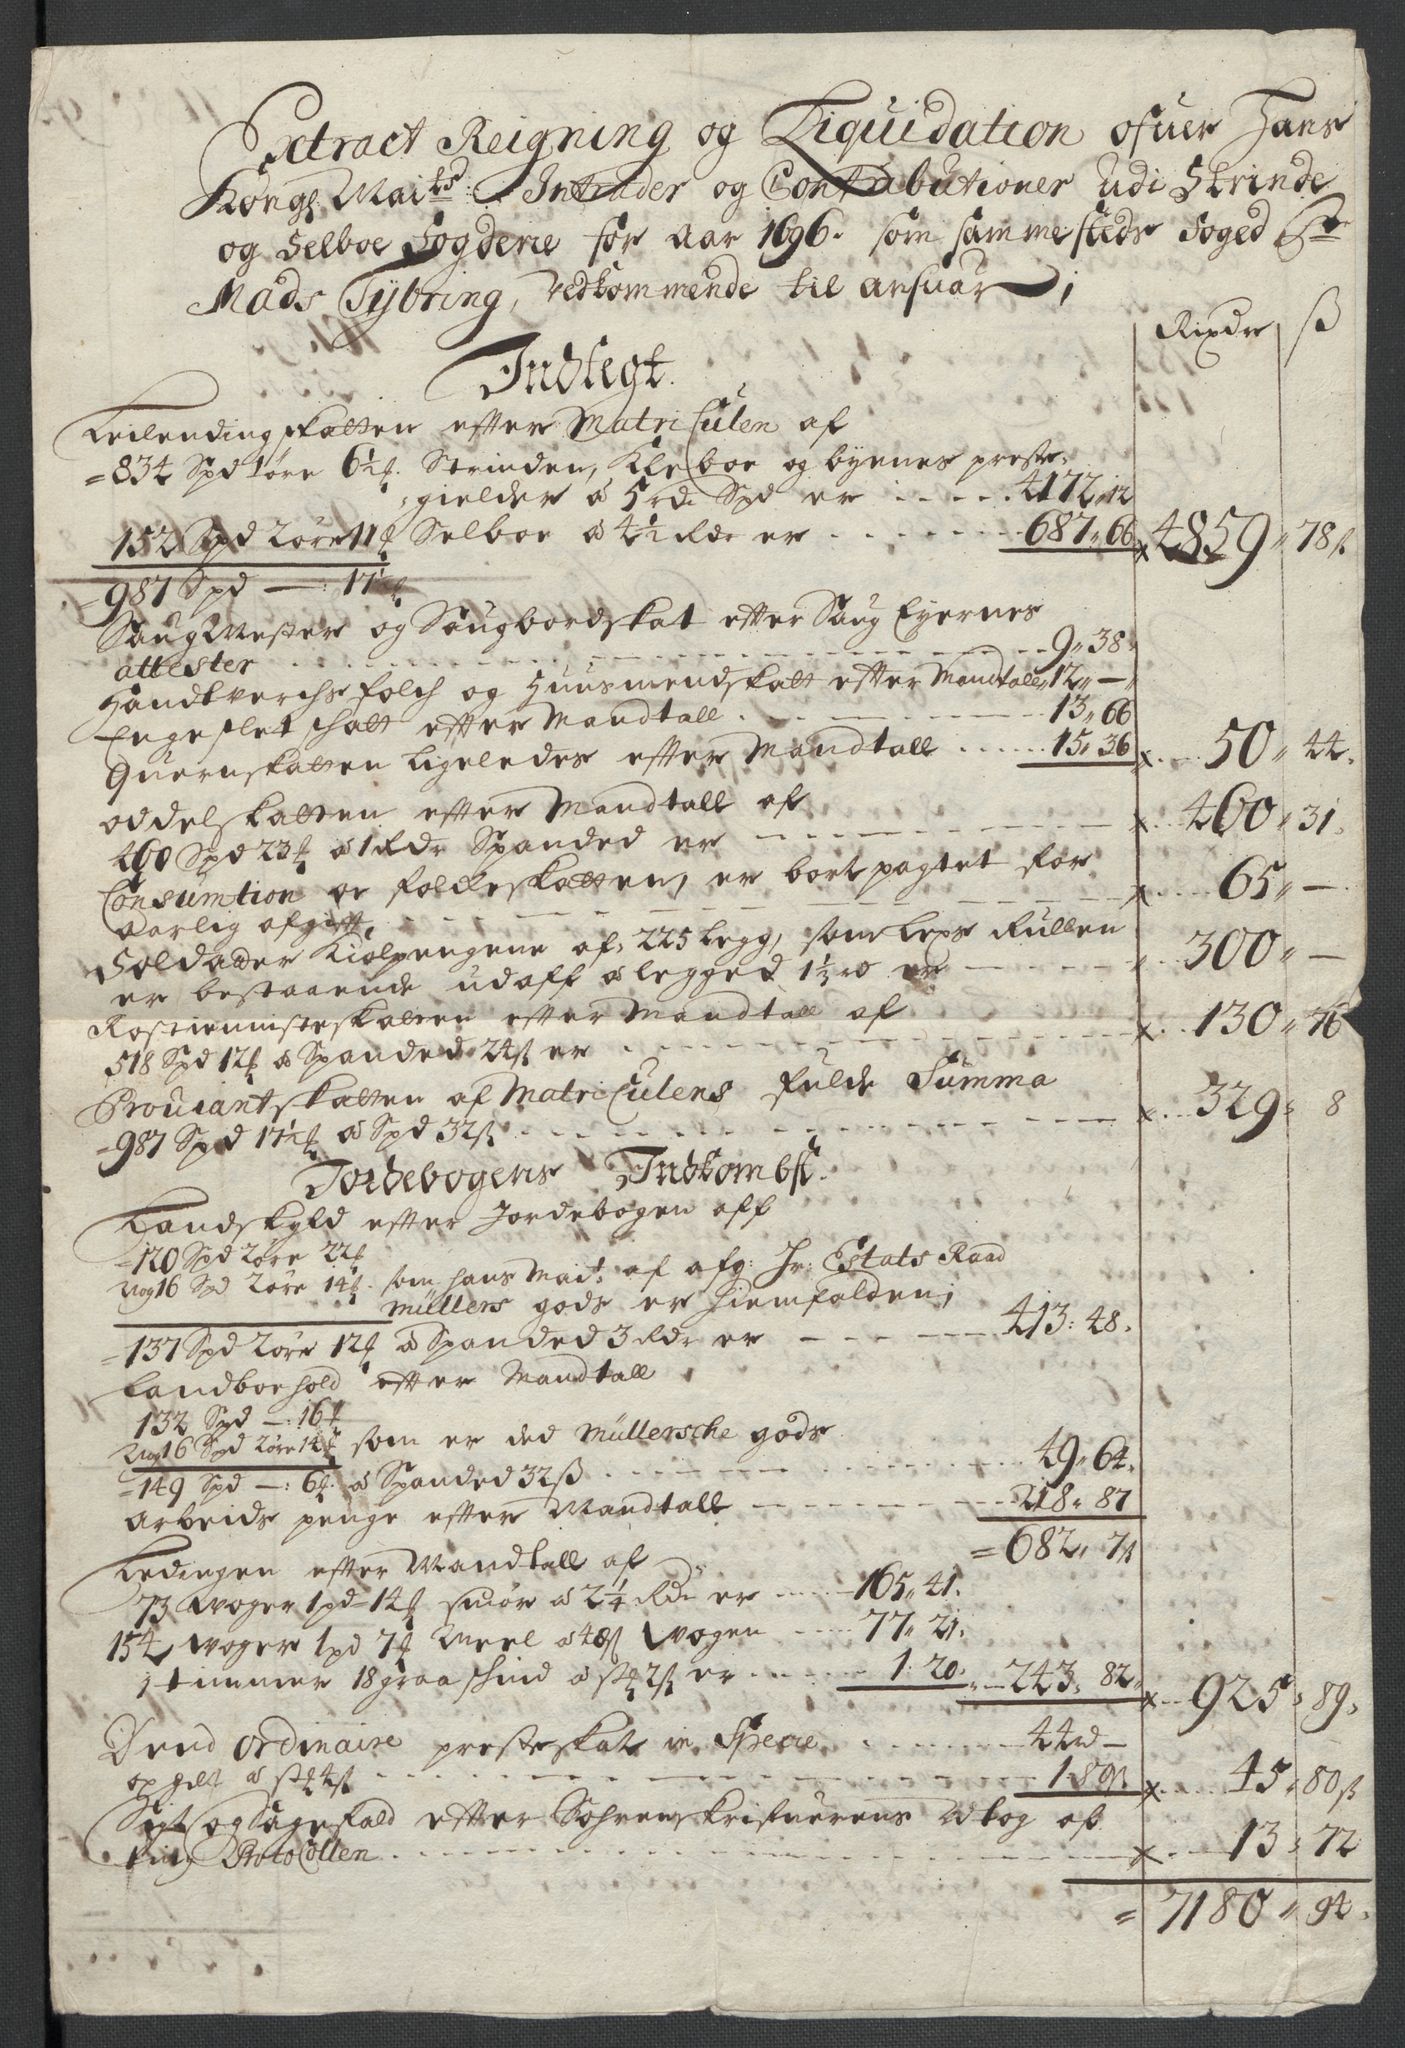 Extract Reigning og Liquidation ofuer Hans
Kongl: Mai:ts Intrader og Contributioner Udi Strinde
og Selboe Fogderie for Aar 1696. som sammesteds Foged Sr
Mads Tybring, vedkommende til ansuar;
Rixdr ß
Indtegt.
Leilendingskatten efter Matriculen af
=834 Spd 1øre 6½ Strinden, Klæboe og byenes preste-
gielder â 5 rd. Spd er 4172 „ 12
152 Spd 2øre 11 Selboe â 4½ Rdr er 687 „ 66 4859 „ 78ß
=987 Spd — 17½
Saug Mester og Saugbordskat efter Saug Eyernes
attester 9 „ 38
Handtverchsfolch og Huusmendskatt efter Mandtall 12 „ —
Engeslet skatt efter Mandtall 13 „ 66
Quernskatten ligeledes efter Mandtall 15 „ 36 50 „ 44
Oddelskatten efter Mandtall af
460 Spd 23 â 1 Rdr Spanded er 460 „ 31
Consumtion oc folcheskatten, er bortpagtet for
Aarlig afgift 65 „ —
Soldatter Kiolpengene af 225 Legg, som Legs Rullen
er bestaaende udaff â legged 1⅓ rd er 300 „ —
Rostienisteskatten efter Mandtall af
518 Spd 12 â Spanded 24ß er 130 „ 76
Prouiantskatten af Matriculens fulde Summa
=987 Spd 17½ â Spd 32ß 329 „ 8
Jordebogens Indkombst.
Landskyld efter Jordebogen aff
=120 Spd 2øre 22
Nog 16 Spd 2øre 14 som hans Mait: af afg: Hr: Estats Raad
Müllers gods er hiemfalden;
=137 Spd 2øre 12 â Spanded 3 Rdr er 413 : 48
Landboehold efter Mandtall
132 Spd — : 16
Nog 16 Spd 2øre 14 som er ded Müllersche gods
=149 Spd — : 6 â Spanded 32ß 49 „ 64
Arbeids penge efter Mandtall 218 „ 87
=682 „ 7ß
Ledingen efter Mandtall af
73 Woger 1pd 14 smør â 2¼ Rdr er 165 „ 41
154 Woger 1pd 7 Meel â 48ß Wogen 77 „ 21
1 timmer 18 graaskind â st 2ß er 1 : 20 243 „ 82 925 „ 89
Dend Ordinaire presteskat in Specie 44 rd —
opgilt â st 4ß 1 „ 80ß 45 „ 80ß
Sigt og Sagefald efter Sohrenskrifuerens Udtog af
ting Protocollen 13 „ 72
=7180 „ 94